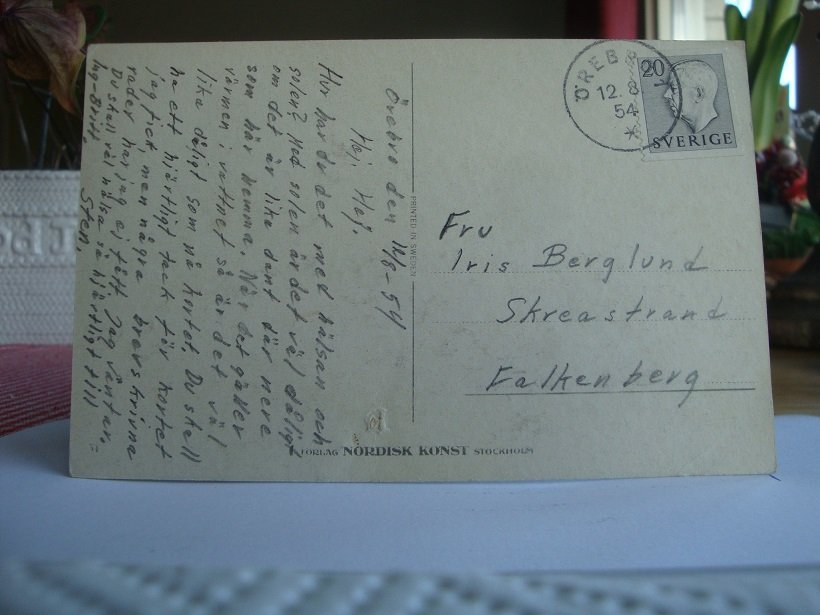 Örebro den 12/8-54
Hej, Hej.
Hur har du det med hälsan och
solen? Med solen är det väl dåligt
om det är lika dant där nere
som här hemma. När det gäller
värmen i vattnet så är det väl
lika dåligt som på kortet Du skall
ha ett hjärtligt tack för kortet
jag fick men några brevskrivna
rader har jag ej fått Jag väntar.=
Du skall väl hälsa så hjärtligt till
Ing-Britt. Sten.
PRINTED IN SWEDEN
FÖRLAG NORDISK KONST STOCKHOLM
ÖREB
12. 8
54
20
SVERIGE
Fru
Iris Berglund
Skreastrand
Falkenberg